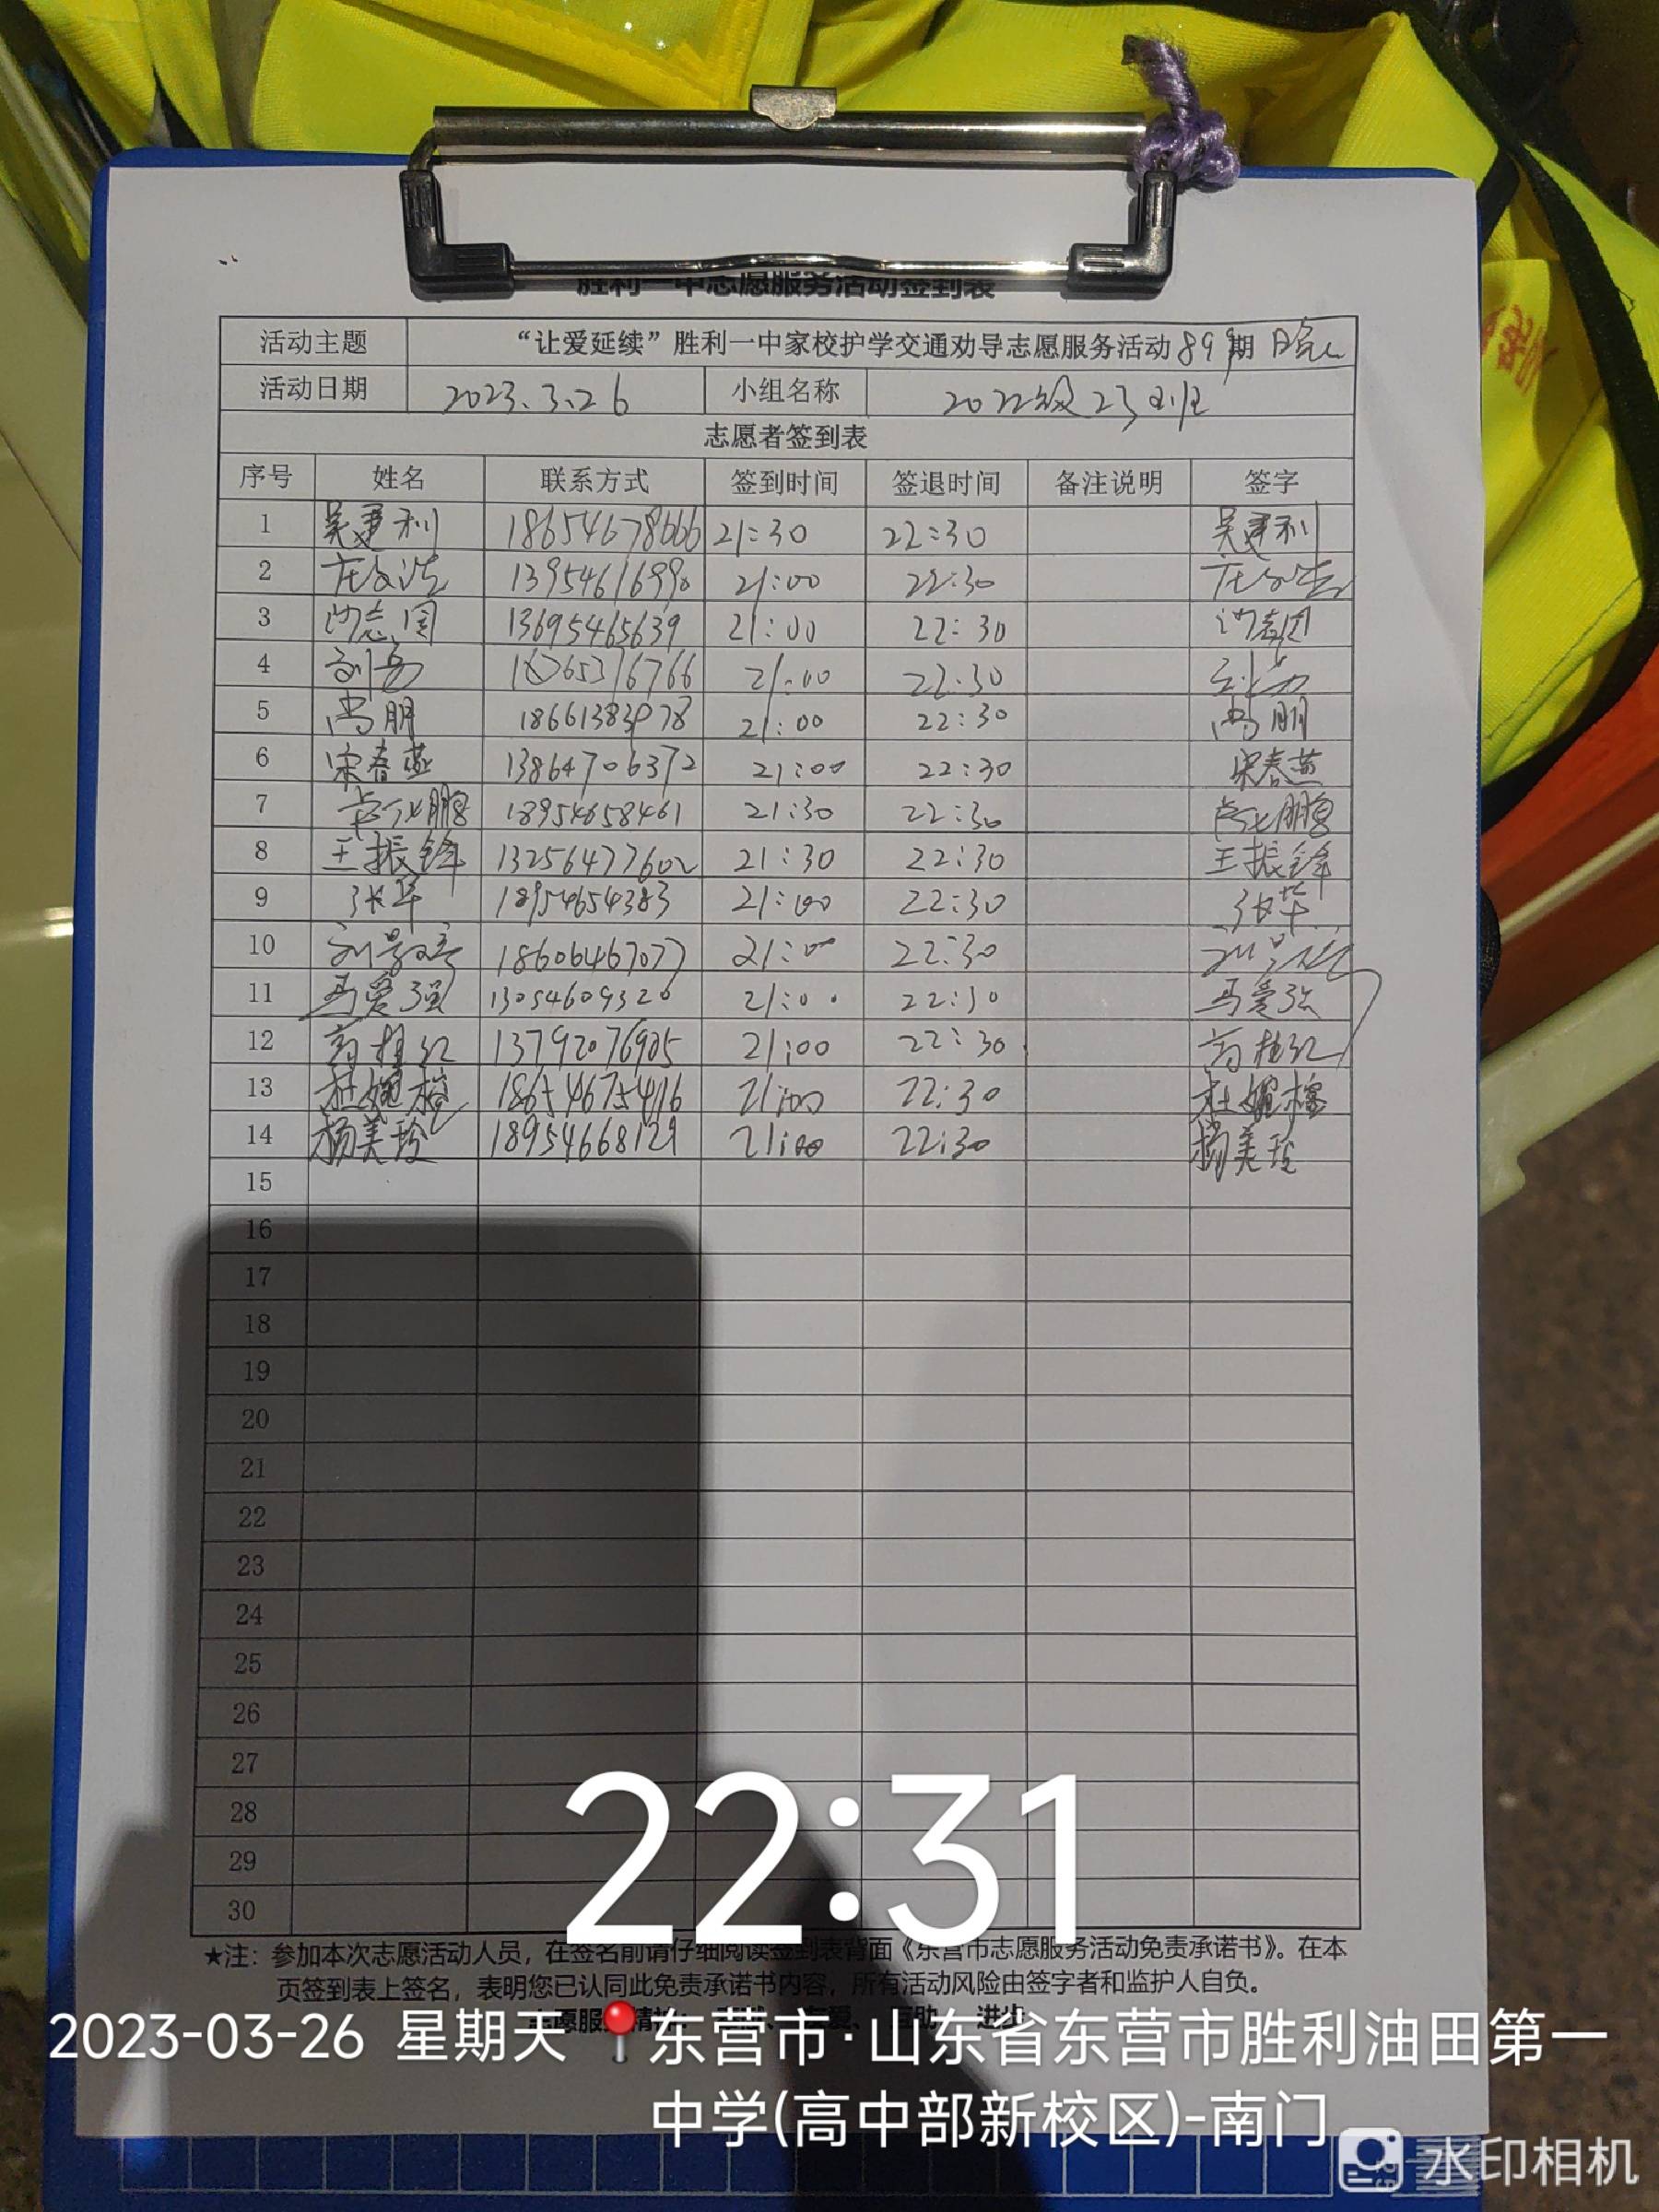 胜利一中志愿服务活动签到表
活动主题 “让爱延续”胜利一中家校护学交通劝导志愿服务活动89期 晚
活动日期 2023.3.26 小组名称 2022级23班
志愿者签到表
序号 姓名 联系方式 签到时间 签退时间 备注说明 签字
1 吴建利 18654678666 21:30 22:30 吴建利
2 13954616990 21:00 22:30
3 志国 13695465639 21:00 22:30 志国
4 刘 21:00 22:30 刘
5 尚朋 21:00 22:30 尚朋
6 宋春燕 13864706372 21:00 22:30 宋春燕
7 鹏 18954658461 21:30 22:30 鹏
8 王振锋 13256477602 21:30 22:30 王振锋
9 张华 18954654383 21:00 22:30 张华
10 刘景 18606467077 21:00 22:30 刘景
11 马爱强 13054609320 21:00 22:30 马爱强
12 桂红 13792076905 21:00 22:30 桂红
13 杜婉榕 18654675416 21:00 22:30 杜婉榕
14 杨美玲 18954668129 21:00 22:30 杨美玲
15
16
17
18
19
20
21
22
23
24
25
26
27
28
29
30
★注：参加本次志愿活动人员，在签名前请仔细阅读签到表背面《东营市志愿服务活动免责承诺书》。在本
页签到表上签名，表明您已认同此免责承诺书内容，所有活动风险由签字者和监护人自负。
志愿服务精神： 友爱、互助、进步
22:31
2023-03-26 星期天 东营市·山东省东营市胜利油田第一
中学(高中部新校区)-南门
水印相机